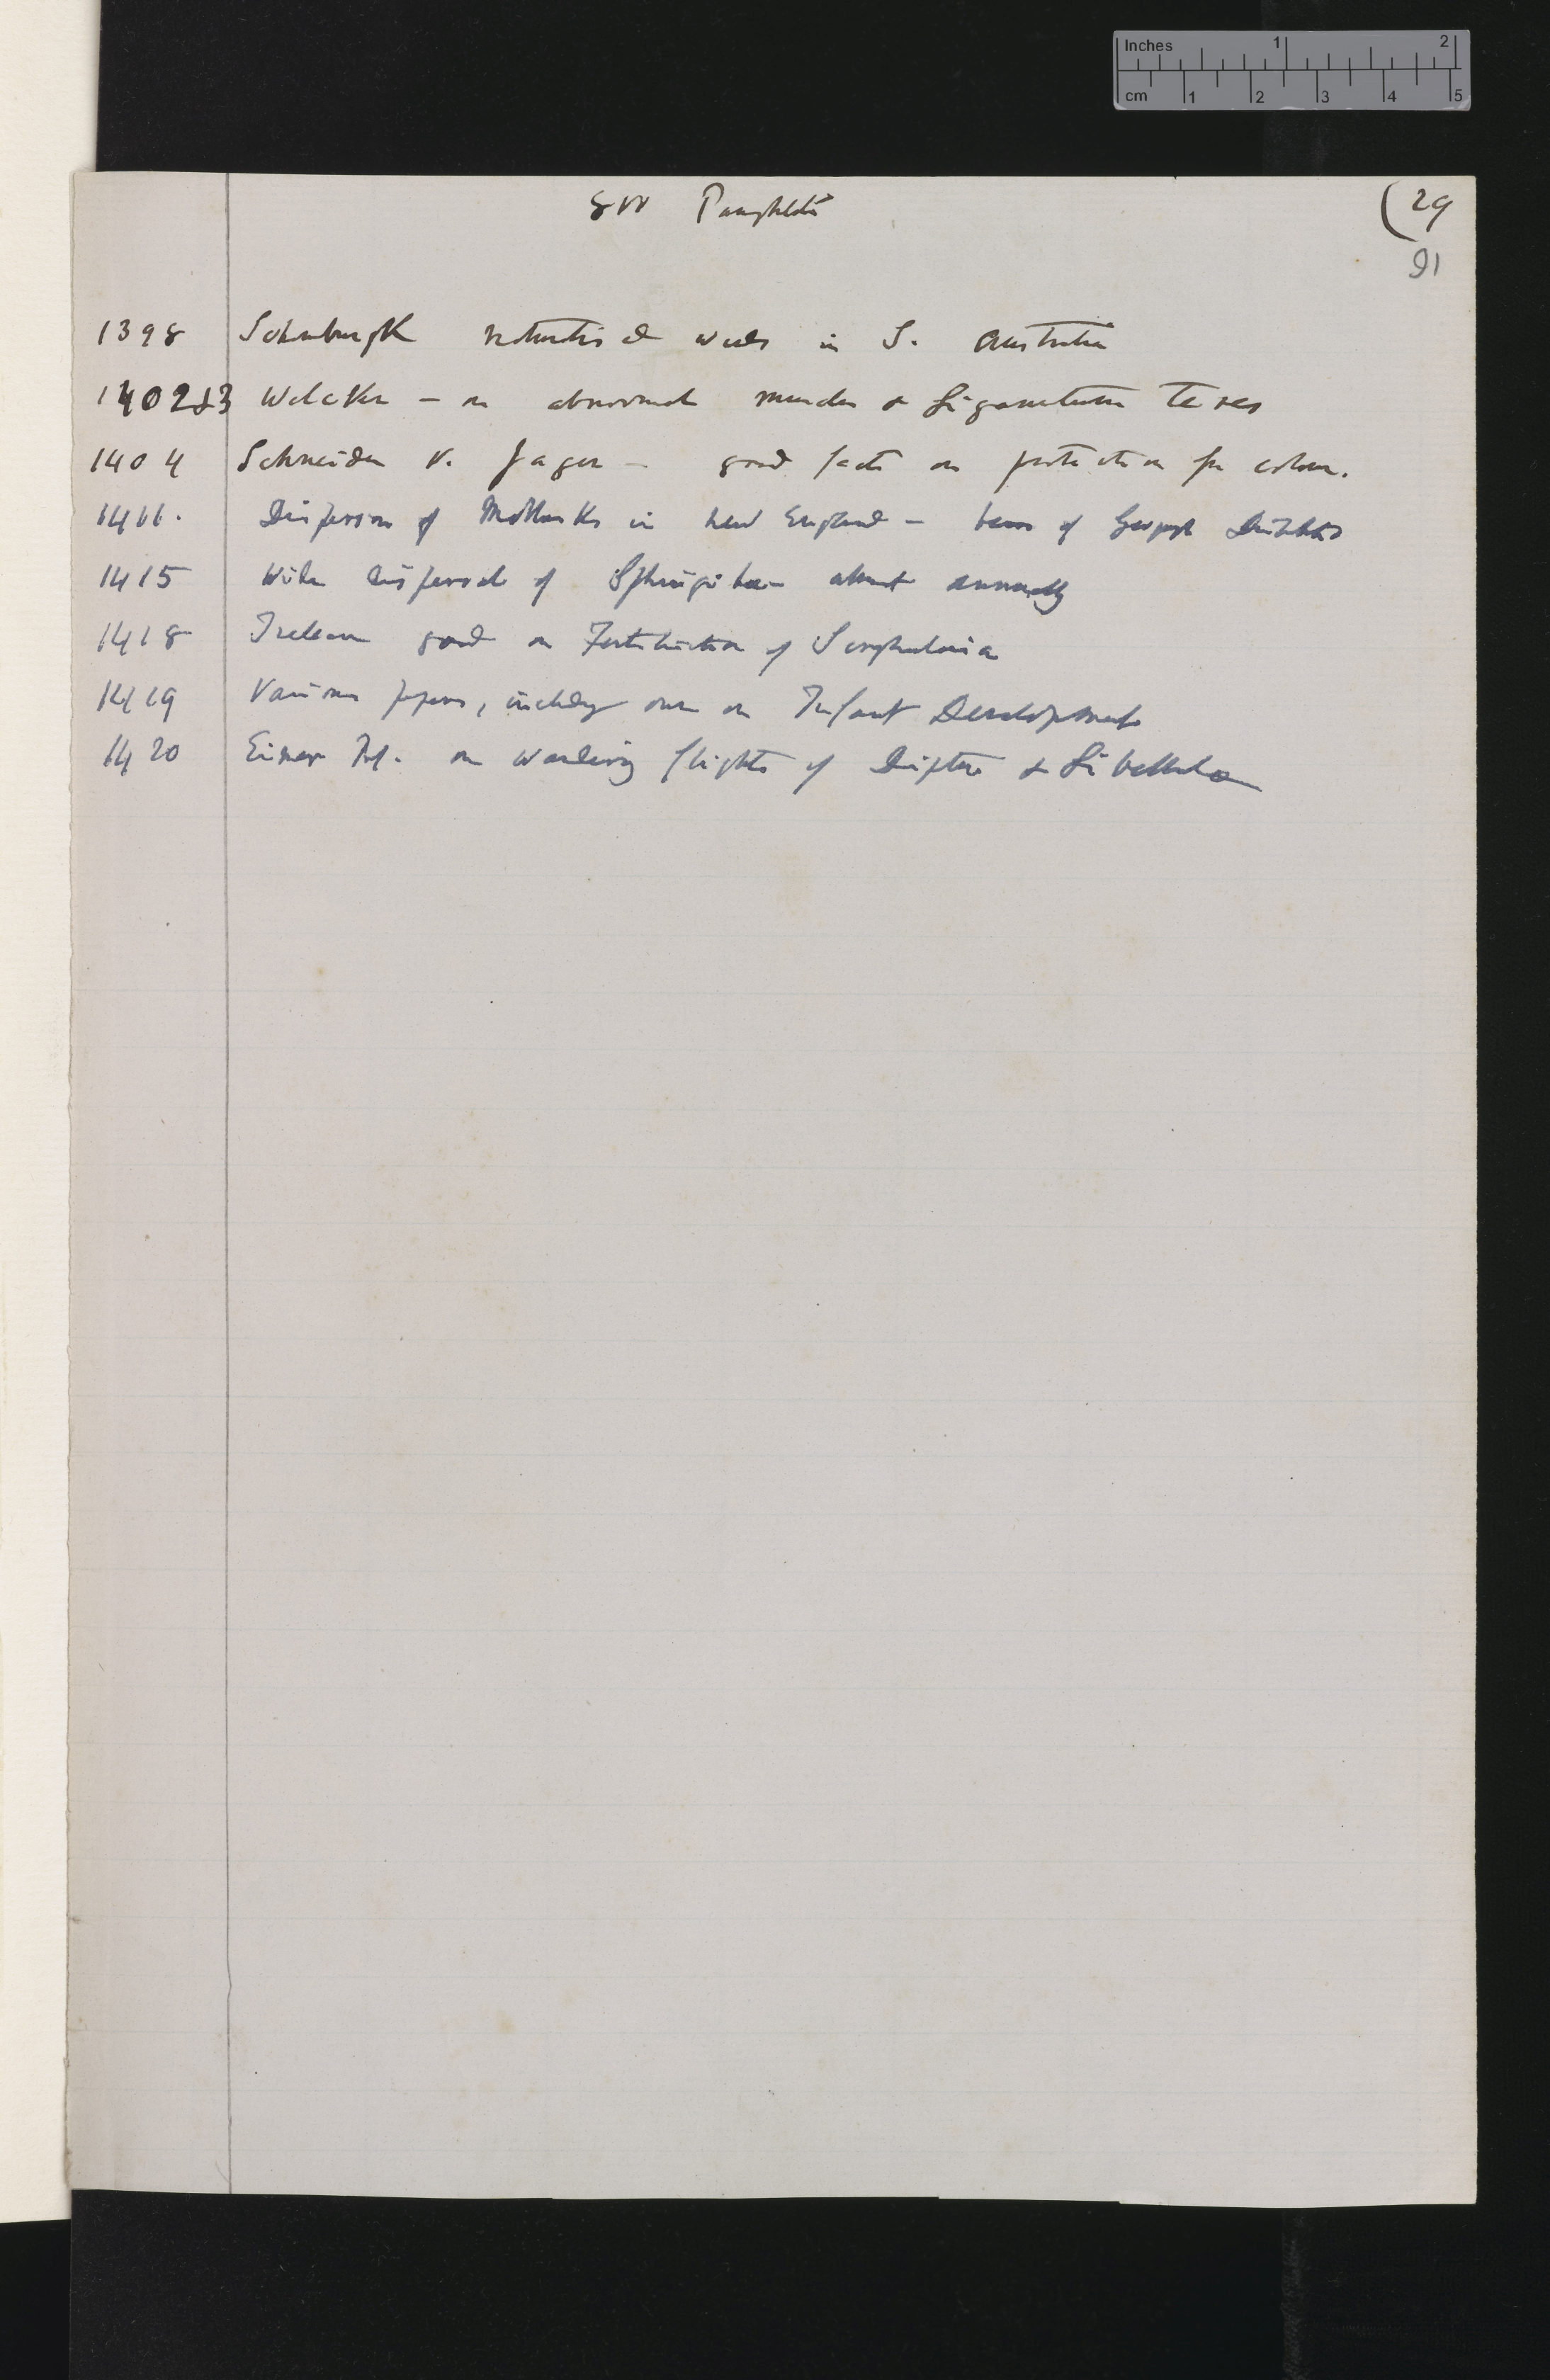 8vo Pamphlets (29
91
1398 Schomburgk naturalised weeds in S. Australia
1402&3 Welcker — on abnormal muscles & Ligamentum Teres
1404 Schneider v. Jager — good facts on protection fr colour.
1411. Dispersion of Mollusks in New England — of Geograph Distrib
1415 Wide dispersal of Sphingidae almost annually
1418 Trelease good on Fertilisation of Scrophularia
1419 Various papers, including one on Infant Development
1420 Eimer Prof. on Wandering flights of Diptera & Libellula